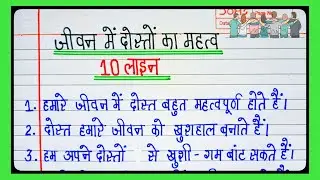 जीवन में दोस्तों का महत्व
10 लाइन
1. हमारे जीवन में दोस्त बहुत महत्वपूर्ण होते हैं।
2. दोस्त हमारे जीवन को खुशहाल बनाते हैं।
3. हम अपने दोस्तों से खुशी - गम बांट सकते हैं।